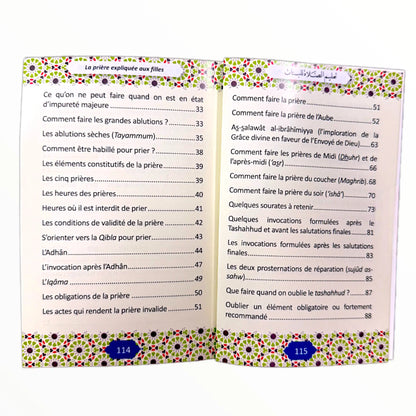 La prière expliquée aux filles
Ce qu'on ne peut faire quand on est en état
d'impureté majeure 33
Comment faire les grandes ablutions ? 33
Les ablutions sèches (Tayammum) 35
Comment être habillé pour prier ? 38
Les éléments constitutifs de la prière 39
Les cinq prières 39
Les heures des prières 40
Heures où il est interdit de prier 41
Les conditions de validité de la prière 41
S'orienter vers la Qibla pour prier 43
L'Adhân 44
L'invocation après l'Adhân 47
L'Iqâma 49
Les obligations de la prière 50
Les actes qui rendent la prière invalide 51
114
تعليم الصلاة للبنات
Comment faire la prière 51
Comment faire la prière de l'Aube 62
Aṣ-ṣalawât al-ibrâhîmiyya (l'imploration de la
Grâce divine en faveur de l'Envoyé de Dieu) 63
Comment faire les prières de Midi (Ḍhuhr) et de
l'après-midi ('aṣr) 67
Comment faire la prière du coucher (Maghrib). 68
Comment faire la prière du soir ('ishâ') 69
Quelques sourates à retenir 73
Quelques invocations formulées après le
Tashahhud et avant les salutations finales 81
Les invocations formulées après les salutations
finales 83
Les deux prosternations de réparation (sujûd as-
sahw) 85
Que faire quand on oublie le tashahhud ? 87
Oublier un élément obligatoire ou fortement
recommandé 88
115